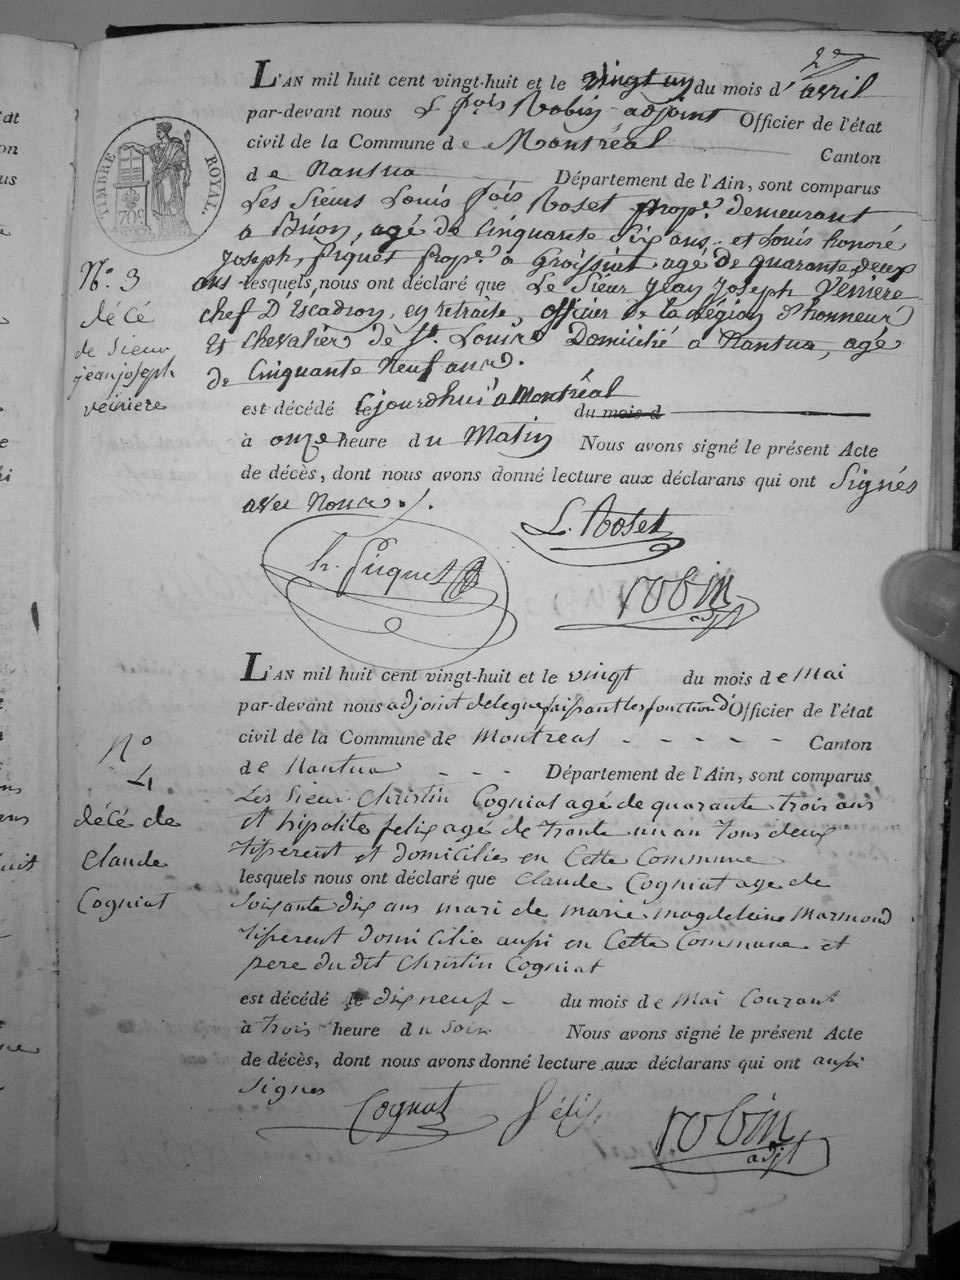 2e
L'AN mil huit cent vingt-huit et le vingt un du mois d'avril
par-devant nous L. fois Robin adjoint Officier de l'état
civil de la Commune de Montréal Canton
de Nantua Département de l'Ain, sont comparus
Les Sieurs Louis fois Roset prope. demeurant
a Brion, agé de Cinquante Six ans et Louis honoré
Joseph, piquet prope. a Groissiat agé de quarante deux
ans lesquels nous ont déclaré que Le Sieur Jean Joseph Veiriere
chef D'Escadron, en retraite, officier de la Légion d'honneur
Et Chevalier de St. Louis Domicilié a Nantua, agé
de Cinquante Neuf ans.
est décédé le jourdhui a Montréal du mois d
à onze heure du Matin Nous avons signé le présent Acte
de décès, dont nous avons donné lecture aux déclarans qui ont Signés
avec Nous.
L. Roset
h. Piquet
robin
adjt
TIMBRE ROYAL.
70c
No. 3
décé
de Sieur
jean joseph
veiriere
L'AN mil huit cent vingt-huit et le vingt du mois de Mai
par-devant nous adjoint delegue faisant les fonction d'Officier de l'état
civil de la Commune de Montreal - - - - - Canton
de Nantua - - - Département de l'Ain, sont comparus
Les Sieur Christin Cogniat agé de quarante trois ans
et hipolite felix agé de trente un an Tous deux
Tisserent et domiciliés en Cette Commune
lesquels nous ont déclaré que Claude Cogniat age de
Soixante dix ans mari de marie magdeleine Marmond
Tisserent domicilie aussi en Cette Commune et
pere du dit Christin Cogniat
est décédé le dix neuf - du mois de Mai Courant
à trois heure du Soir Nous avons signé le présent Acte
de décès, dont nous avons donné lecture aux déclarans qui ont aussi
Signes
Cogniat félix robin
adjt
No
4
décé de
Claude
Cogniat